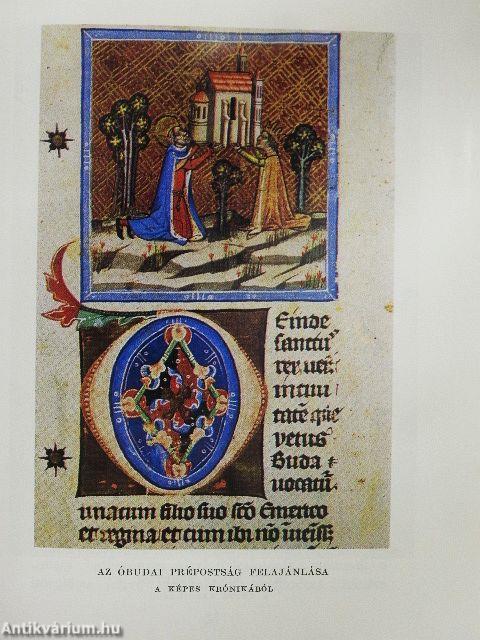 Einde
sanctu
ter veñ
in ciui
tatē que
vetus
Buda
uocatū
una cum filio suo scō Emerico
et regina et cum ibi nō
AZ ÓBUDAI PRÉPOSTSÁG FELAJÁNLÁSA
A KÉPES KRÓNIKÁBÓL
Antikvárium.hu